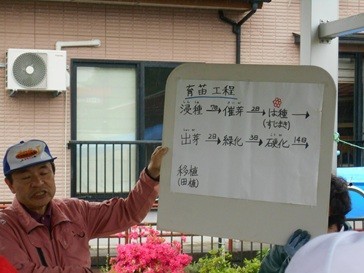 育苗工程
浸種 7日 催芽 2日 は種
(すじまき)
出芽 2日 緑化 3日 硬化 14日
移植
(田植)